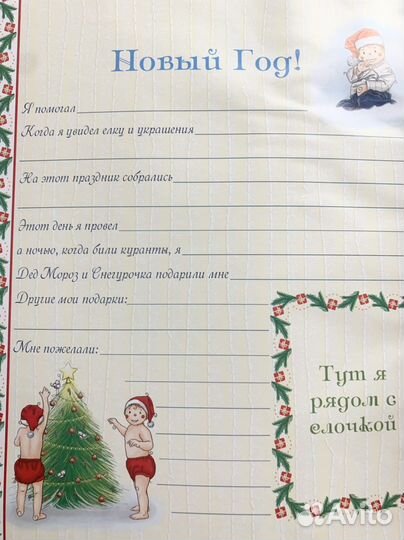 Новый Год!
Я помогал
Когда я увидел елку и украшения
На этот праздник собрались
Этот день я провел
а ночью, когда били куранты, я
Дед Мороз и Снегурочка подарили мне
Другие мои подарки:
Мне пожелали:
Тут я
рядом с
елочкой
Avito